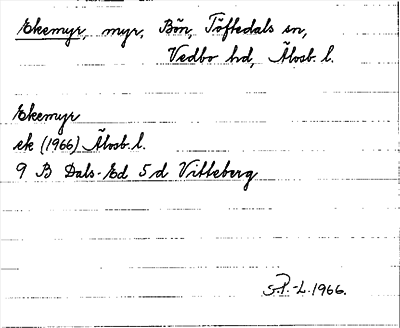 Ekemyr, myr, Bön, Töftedals sn,
Vedbo hd, Älvsb. l.
Ekemyr
ek (1966) Älvsb. l.
9 B Dals-Ed 5 d Vitteberg
S.P.-L. 1966.